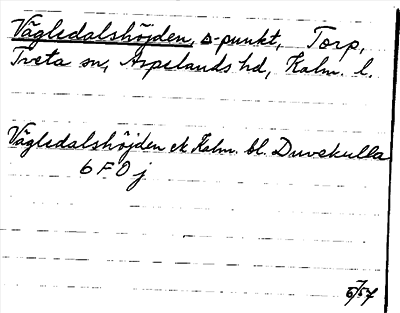 Vägledalshöjden, △-punkt, Torp,
Tveta sn, Aspelands hd, Kalm. l.
Vägledalshöjden ek Kalm. bl. Duvekulla
6 F 0 j
6/57